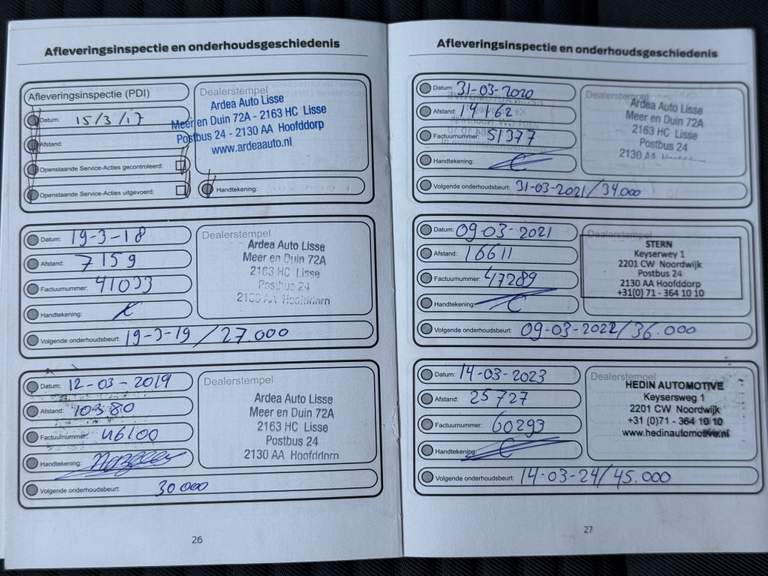 Afleveringsinspectie en onderhoudsgeschiedenis
Afleveringsinspectie (PDI)
Datum: 15/3/17
Afstand:
Openstaande Service-Acties gecontroleerd:
Openstaande Service-Acties uitgevoerd:
Dealerstempel
Ardea Auto Lisse
Meer en Duin 72A - 2163 HC Lisse
Postbus 24 - 2130 AA Hoofddorp
www.ardeaauto.nl
Handtekening:
Datum: 19-3-18
Afstand: 7159
Factuurnummer: 41033
Handtekening:
Dealerstempel
Ardea Auto Lisse
Meer en Duin 72A
2163 HC Lisse
Postbus 24
2130 AA Hoofddorp
Volgende onderhoudsbeurt: 19-3-19 / 27.000
Datum: 12-03-2019
Afstand: 10380
Factuurnummer: 46100
Handtekening:
Dealerstempel
Ardea Auto Lisse
Meer en Duin 72A
2163 HC Lisse
Postbus 24
2130 AA Hoofddorp
Volgende onderhoudsbeurt: 30000
26
Afleveringsinspectie en onderhoudsgeschiedenis
Datum: 31-03-2020
Afstand: 14162
Factuurnummer: 51377
Handtekening:
Dealerstempel
Ardea Auto Lisse
Meer en Duin 72A
2163 HC Lisse
Postbus 24
2130 AA
Volgende onderhoudsbeurt: 31-03-2021/34.000
Datum: 09-03-2021
Afstand: 16611
Factuurnummer: 47289
Handtekening:
Dealerstempel
STERN
Keyserweg 1
2201 CW Noordwijk
Postbus 24
2130 AA Hoofddorp
+31(0) 71 - 364 10 10
Volgende onderhoudsbeurt: 09-03-2022/36.000
Datum: 14-03-2023
Afstand: 25727
Factuurnummer: 60293
Handtekening:
Dealerstempel
HEDIN AUTOMOTIVE
Keyserswey 1
2201 CW Noordwijk
+31 (0)71 - 364 10 10
www.hedinautomotive.nl
Volgende onderhoudsbeurt: 14-03-24/45.000
27